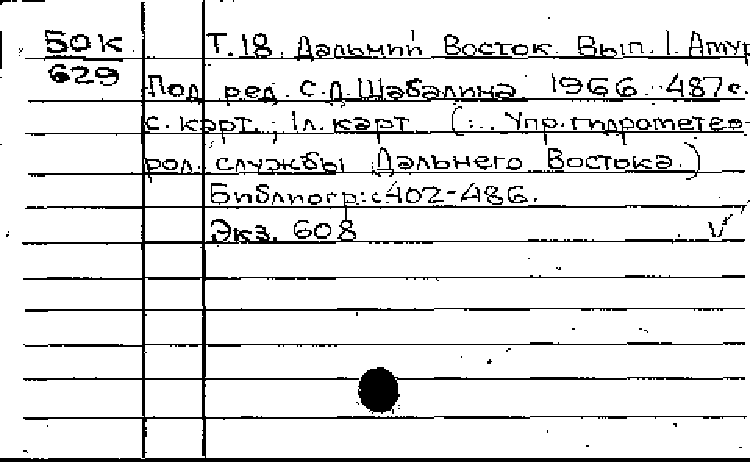 50к
629
Т.18. Дальний Восток. Вып. 1. Амур
Под ред. С.Д.Шабалина. 1966. 487с.
с. карт.; 1л. карт. (:.. Упр. гидрометео-
рол. службы Дальнего Востока.)
Библиогр: с 402-486.
Экз. 608